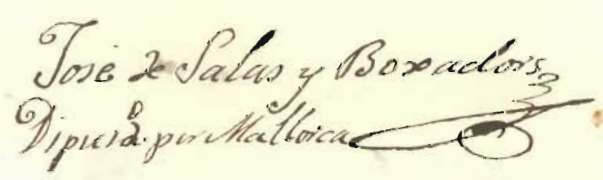 José de Salas y Boxadors
Diputdo. por Mallorca